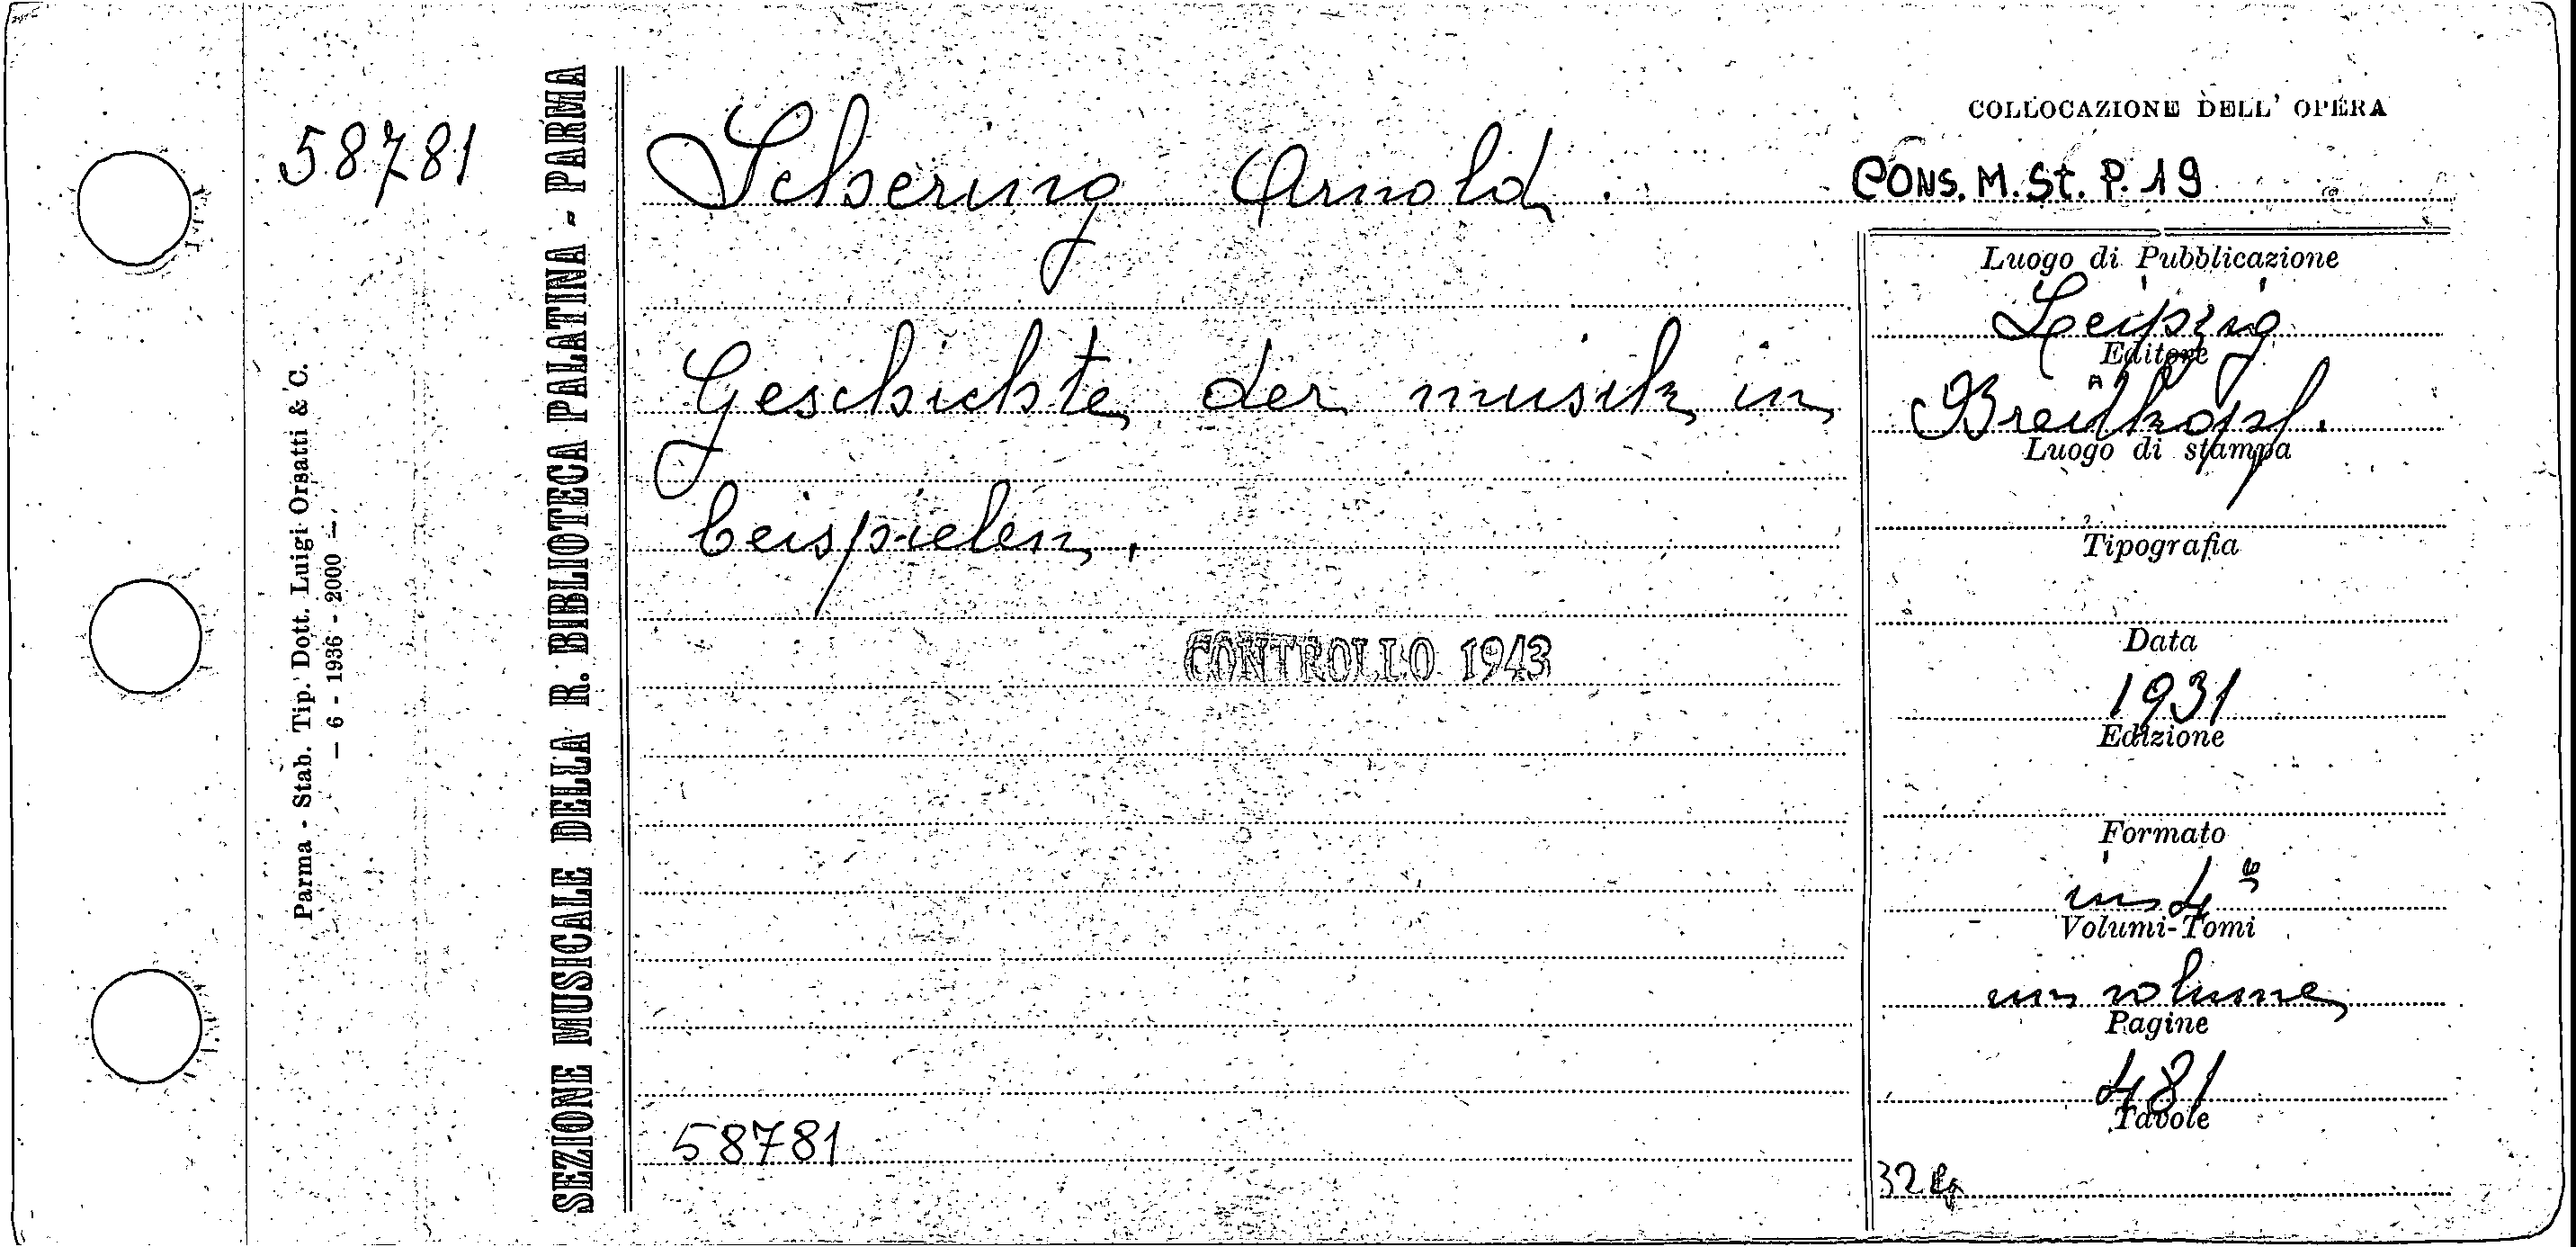 58781
Parma - Stab. Tip. Dott. Luigi Orsatti & C.
— 6 - 1936 - 2000 —
SEZIONE MUSICALE DELLA R. BIBLIOTECA PALATINA - PARMA
Schering Arnold.
Geschichte der musik in
beispielen.
CONTROLLO 1943
58781
COLLOCAZIONE DELL' OPERA
CONS. M. St. P. 19
Luogo di Pubblicazione
Leipzig
Editore
Breitkopf.
Luogo di stampa
Tipografia
Data
1931
Edizione
Formato
in 4°
Volumi-Tomi
un volume
Pagine
481
Tavole
32